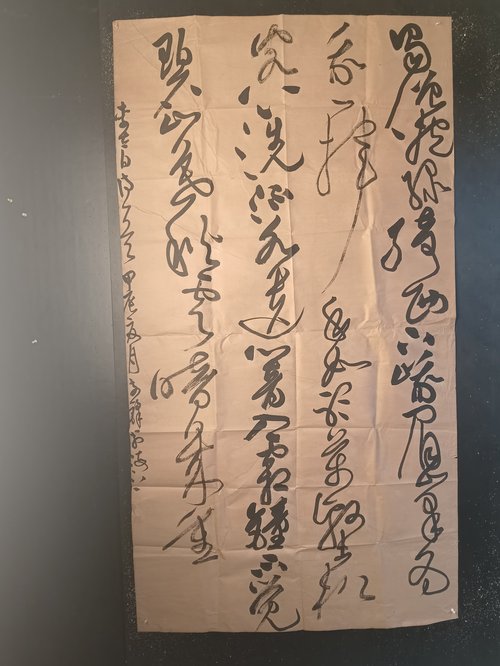 蜀僧抱綠綺西下峨眉峰為
我一揮手如聽萬壑松
客心洗流水遺響入霜鐘不覺
碧山暮秋雲暗幾重
李太白詩一首 甲辰夏月